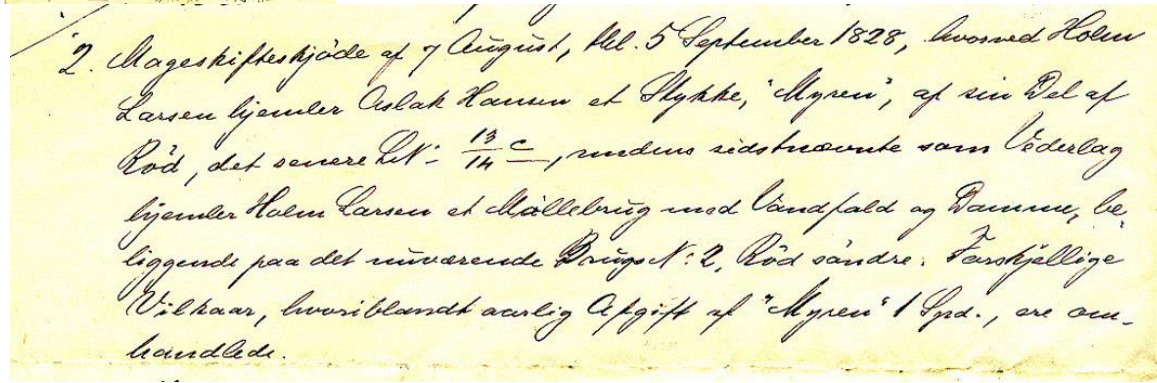 2. Mageskifteskjöde af 7 August, thl. 5 September 1828, hvorved Holm
Larsen hjemler Aslak Hansen et Stykke, "Myren", af sin Del af
Röd, det senere LN: 13/14 c, medens sidstnævnte som Vederlag
hjemler Holm Larsen et Möllebrug med Vandfald og Damme, be„
liggende paa det nuværende Brugs N: 2, Röd söndre. Forskjellige
Vilkaar, hvoriblandt aarlig Afgift af "Myren" 1 Spd., ere om-
handlede.